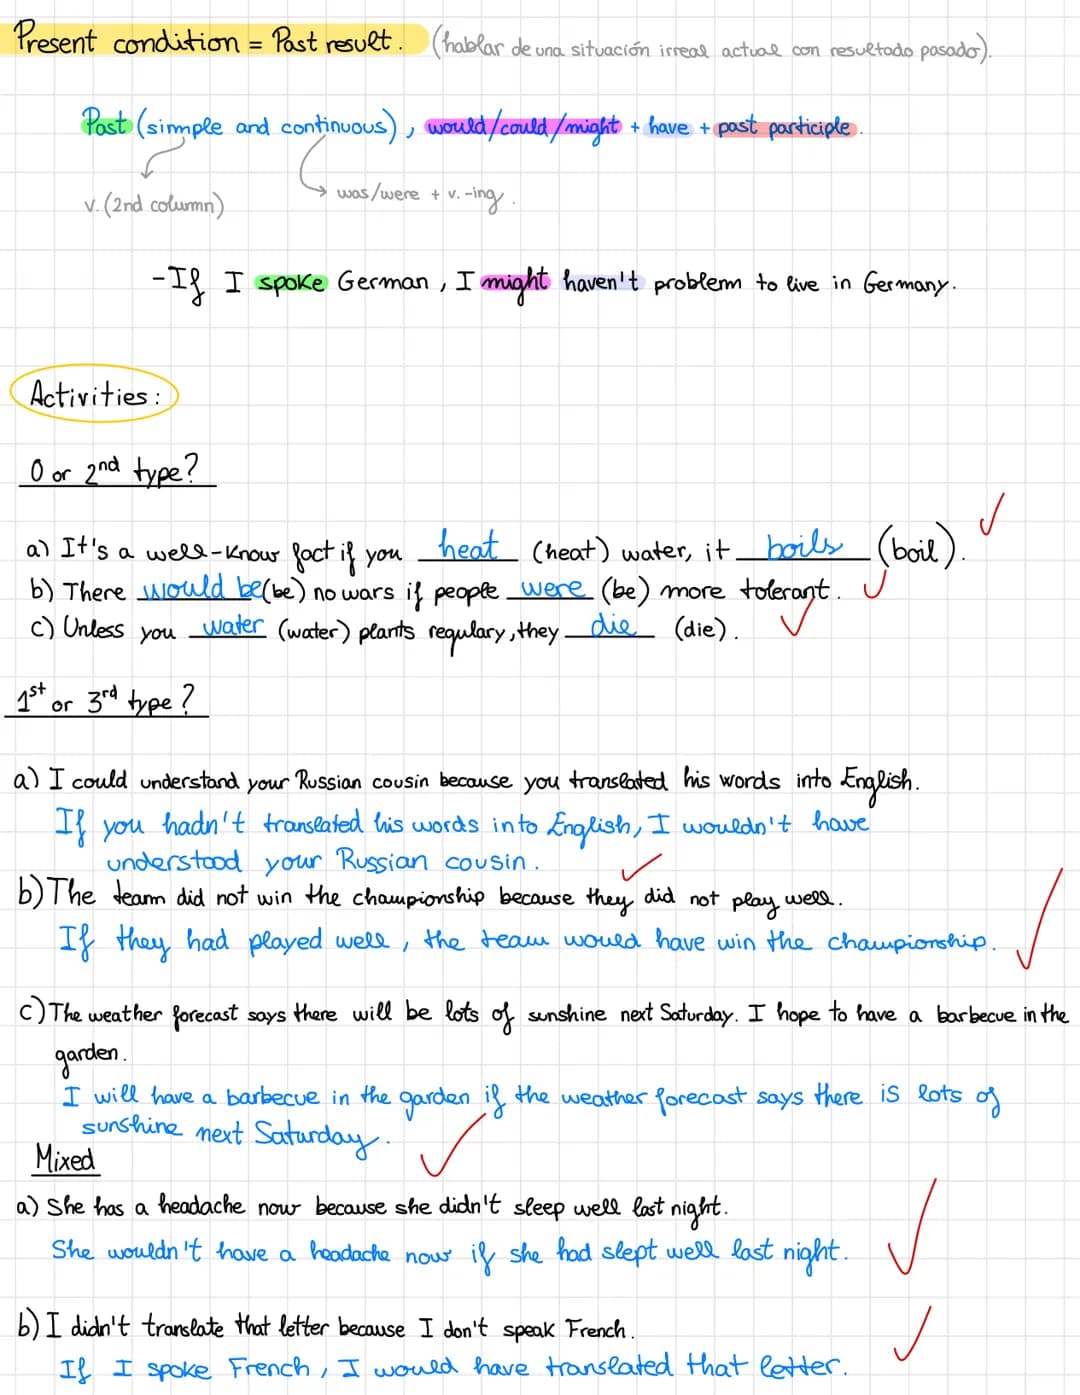 Present condition = Past result. (hablar de una situación irreal actual con resultado pasado).
Past (simple and continuous), would/could/might + have + past participle.
v. (2nd column)
was/were + v. -ing.
-If I spoke German, I might haven't problem to live in Germany.
Activities:
0 or 2nd type?
a) It's a well-know fact if you heat (heat) water, it boils (boil).
b) There would be (be) no wars if people were (be) more tolerant.
c) Unless you water (water) plants regulary, they die (die).
1st or 3rd type?
a) I could understand your Russian cousin because you translated his words into English.
If you hadn't translated his words into English, I wouldn't have
understood your Russian cousin.
b) The team did not win the championship because they did not play well.
If they had played well, the team would have win the championship.
c) The weather forecast says there will be lots of sunshine next Saturday. I hope to have a barbecue in the
garden.
I will have a barbecue in the garden if the weather forecast says there is lots of
sunshine next Saturday.
Mixed
a) She has a headache now because she didn't sleep well last night.
She wouldn't have a headache now if she had slept well last night.
b) I didn't translate that letter because I don't speak French.
If I spoke French, I would have translated that letter.